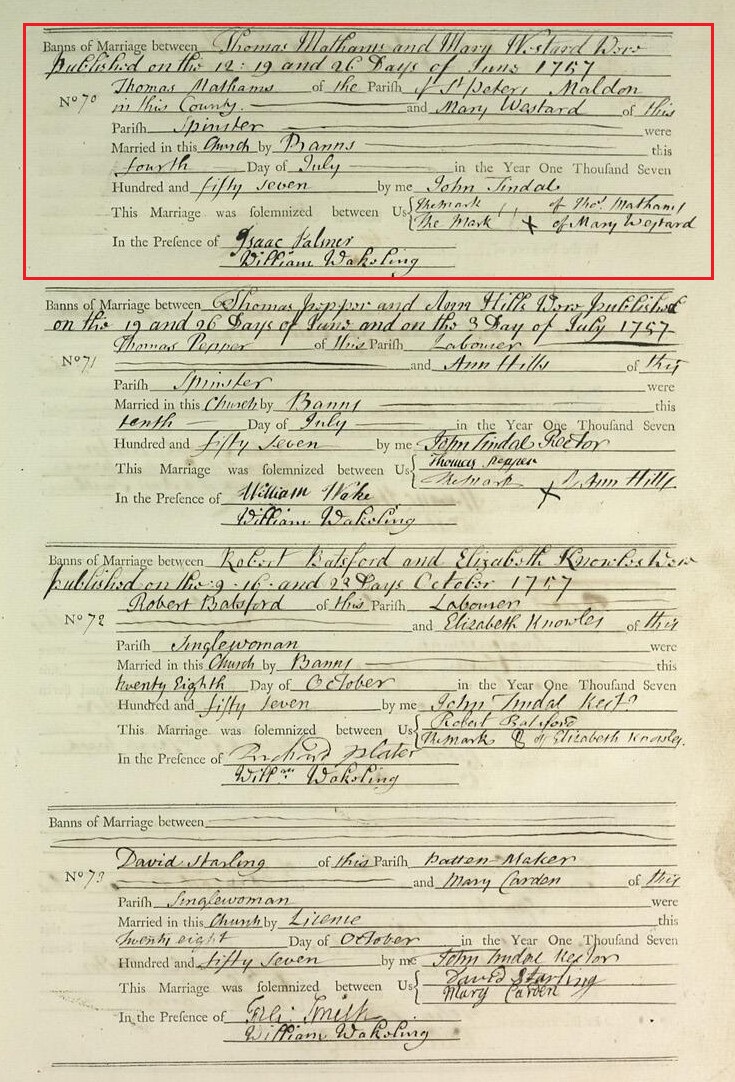 Banns of Marriage between Thomas Mathams and Mary Westard Were
published on the 12: 19 and 26 Days of June 1757
Thomas Mathams of the Parish of St Peters Maldon
No 70 in this County. and Mary Westard of this
Parish Spinster were
Married in this Church by Banns this
fourth Day of July in the Year One Thousand Seven
Hundred and fifty Seven by me John Tindal
This Marriage was solemnized between Us { The mark of Thos Mathams
The Mark X of Mary Westard
In the Presence of Isaac Palmer
William Wakeling
Banns of Marriage between Thomas Pepper and Ann Hills Were published
on the 19 and 26 Days of June and on the 3 Day of July 1757
Thomas Pepper of this Parish Labourer
No 71 and Ann Hills of this
Parish Spinster were
Married in this Church by Banns this
tenth Day of July in the Year One Thousand Seven
Hundred and fifty Seven by me John Tindal Rector
This Marriage was solemnized between Us { Thomas Pepper
The mark X of Ann Hills
In the Presence of William Wake
William Wakeling
Banns of Marriage between Robert Batsford and Elizabeth Knowles Were
published on the 9 - 16 - and 23 Days October 1757
Robert Batsford of this Parish Labourer
No 72 and Elizabeth Knowles of this
Parish Singlewoman were
Married in this Church by Banns this
twenty Eighth Day of October in the Year One Thousand Seven
Hundred and fifty Seven by me John Tindal Rectr
This Marriage was solemnized between Us { Robert Batsford
The mark of Elizabeth Knowles.
In the Presence of Richard Plater
Willam Wakeling
Banns of Marriage between
David Starling of this Parish Patten-Maker
No 73 and Mary Carden of this
Parish Singlewoman were
Married in this Church by Licence this
twenty eight Day of October in the Year One Thousand Seven
Hundred and fifty Seven by me John Tindal Rector
This Marriage was solemnized between Us { David Starling
Mary Carden
In the Presence of Smith
William Wakeling